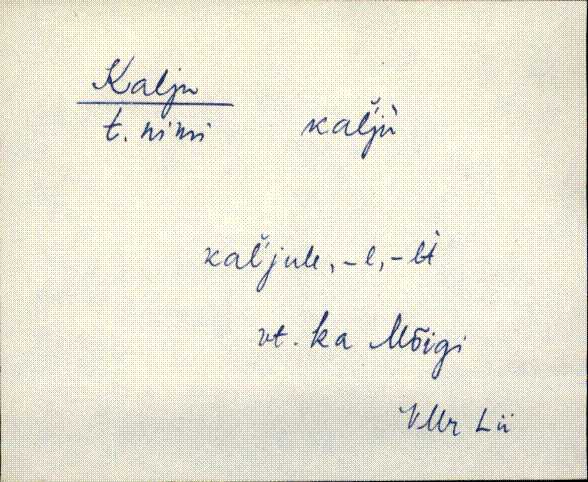 Kalju
t. nimi kal̆'jù
kal̆'jule, -l, -lt̀
vt. ka Mõigi
VMr Lü